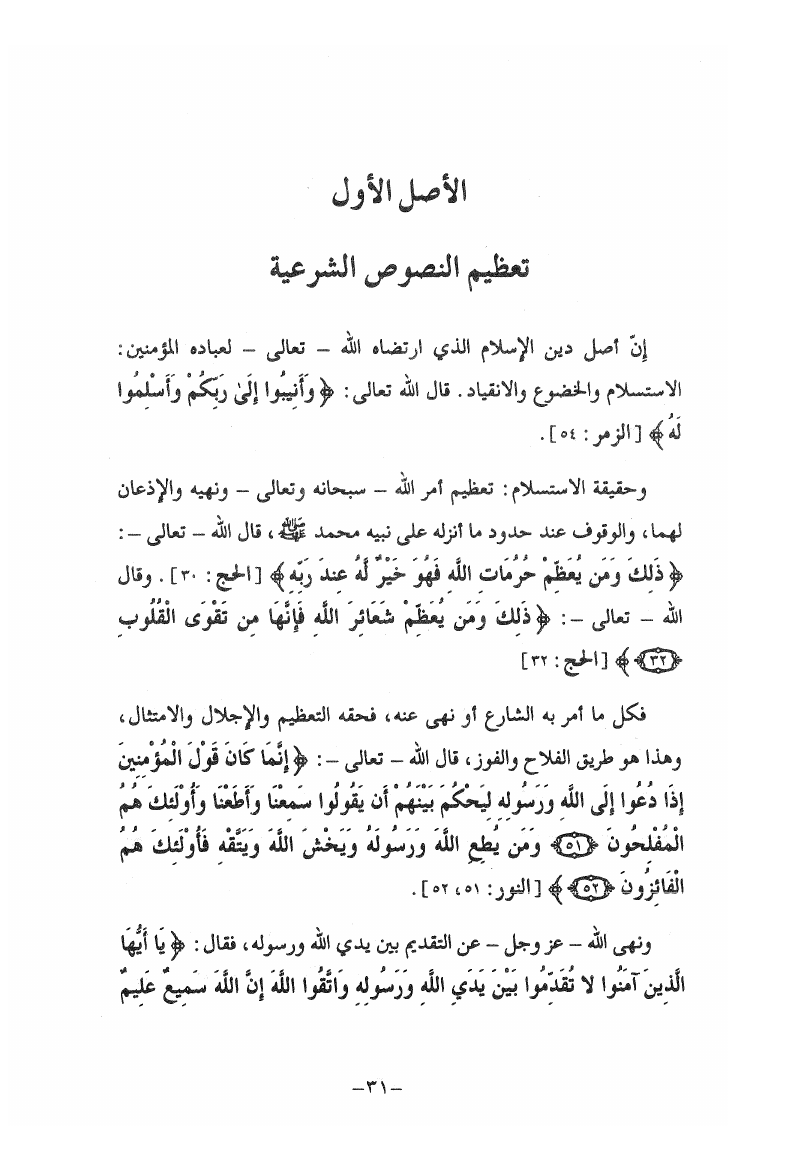 الأصل الأول
تعظيم النصوص الشرعية
إنّ أصل دين الإسلام الذي ارتضاه الله – تعالى – لعباده المؤمنين:
الاستسلام والخضوع والانقياد. قال الله تعالى: ﴿ وَأَنِيبُوا إِلَىٰ رَبِّكُمْ وَأَسْلِمُوا
لَهُ ﴾ [الزمر: ٥٤].
وحقيقة الاستسلام: تعظيم أمر الله – سبحانه وتعالى – ونهيه والإذعان
لهما، والوقوف عند حدود ما أنزله على نبيه محمد ﷺ، قال الله – تعالى –:
﴿ ذَلِكَ وَمَن يُعَظِّمْ حُرُمَاتِ اللَّهِ فَهُوَ خَيْرٌ لَّهُ عِندَ رَبِّهِ ﴾ [الحج: ٣٠]. وقال
الله – تعالى –: ﴿ ذَلِكَ وَمَن يُعَظِّمْ شَعَائِرَ اللَّهِ فَإِنَّهَا مِن تَقْوَى الْقُلُوبِ
﴿٣٢﴾ ﴾ [الحج: ٣٢]
فكل ما أمر به الشارع أو نهى عنه، فحقه التعظيم والإجلال والامتثال،
وهذا هو طريق الفلاح والفوز، قال الله – تعالى –: ﴿ إِنَّمَا كَانَ قَوْلَ الْمُؤْمِنِينَ
إِذَا دُعُوا إِلَى اللَّهِ وَرَسُولِهِ لِيَحْكُمَ بَيْنَهُمْ أَن يَقُولُوا سَمِعْنَا وَأَطَعْنَا وَأُوْلَئِكَ هُمُ
الْمُفْلِحُونَ ﴿٥١﴾ وَمَن يُطِعِ اللَّهَ وَرَسُولَهُ وَيَخْشَ اللَّهَ وَيَتَّقْهِ فَأُوْلَئِكَ هُمُ
الْفَائِزُونَ ﴿٥٢﴾ ﴾ [النور: ٥١، ٥٢].
ونهى الله – عز وجل – عن التقديم بين يدي الله ورسوله، فقال: ﴿ يَا أَيُّهَا
الَّذِينَ آمَنُوا لا تُقَدِّمُوا بَيْنَ يَدَيِ اللَّهِ وَرَسُولِهِ وَاتَّقُوا اللَّهَ إِنَّ اللَّهَ سَمِيعٌ عَلِيمٌ
–٣١–